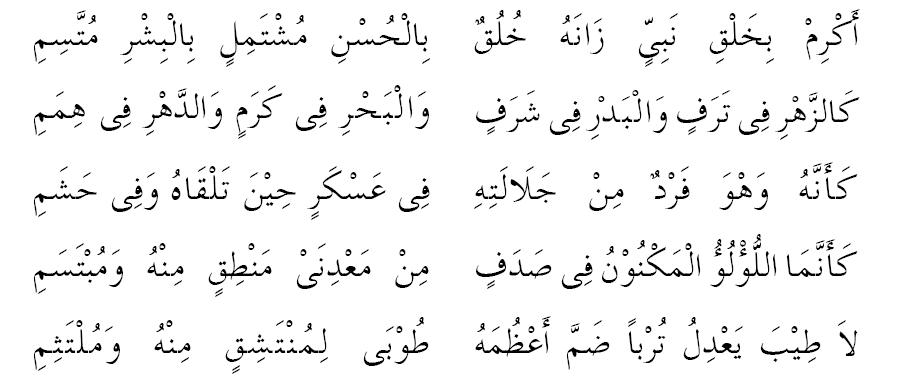 أَكْرِمْ بِخَلْقِ نَبِيٍّ زَانَهُ خُلُقٌ بِالْحُسْنِ مُشْتَمِلٍ بِالْبِشْرِ مُتَّسِمِ
كَالزَّهْرِ فِى تَرَفٍ وَالْبَدْرِ فِى شَرَفٍ وَالْبَحْرِ فِى كَرَمٍ وَالدَّهْرِ فِى هِمَمِ
كَأَنَّهُ وَهْوَ فَرْدٌ مِنْ جَلَالَتِهِ فِى عَسْكَرٍ حِيْنَ تَلْقَاهُ وَفِى حَشَمِ
كَأَنَّمَا اللُّؤْلُؤُ الْمَكْنُوْنُ فِى صَدَفٍ مِنْ مَعْدِنَىْ مَنْطِقٍ مِنْهُ وَمُبْتَسَمِ
لاَ طِيْبَ يَعْدِلُ تُرْباً ضَمَّ أَعْظُمَهُ طُوْبَى لِمُنْتَشِقٍ مِنْهُ وَمُلْتَثِمِ